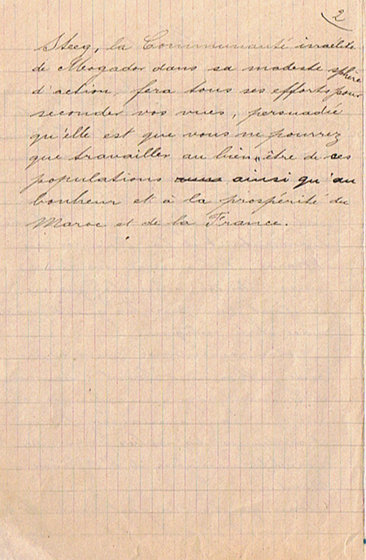 2
Steeg, la Communauté israélite
de Mogador dans sa modeste sphère
d'action, fera tous ses efforts pour
seconder vos vues, persuadée
qu'elle est que vous ne pourrez
que travailler au bien-être de ces
populations ainsi qu'au
bonheur et à la prospérité du
Maroc et de la France.